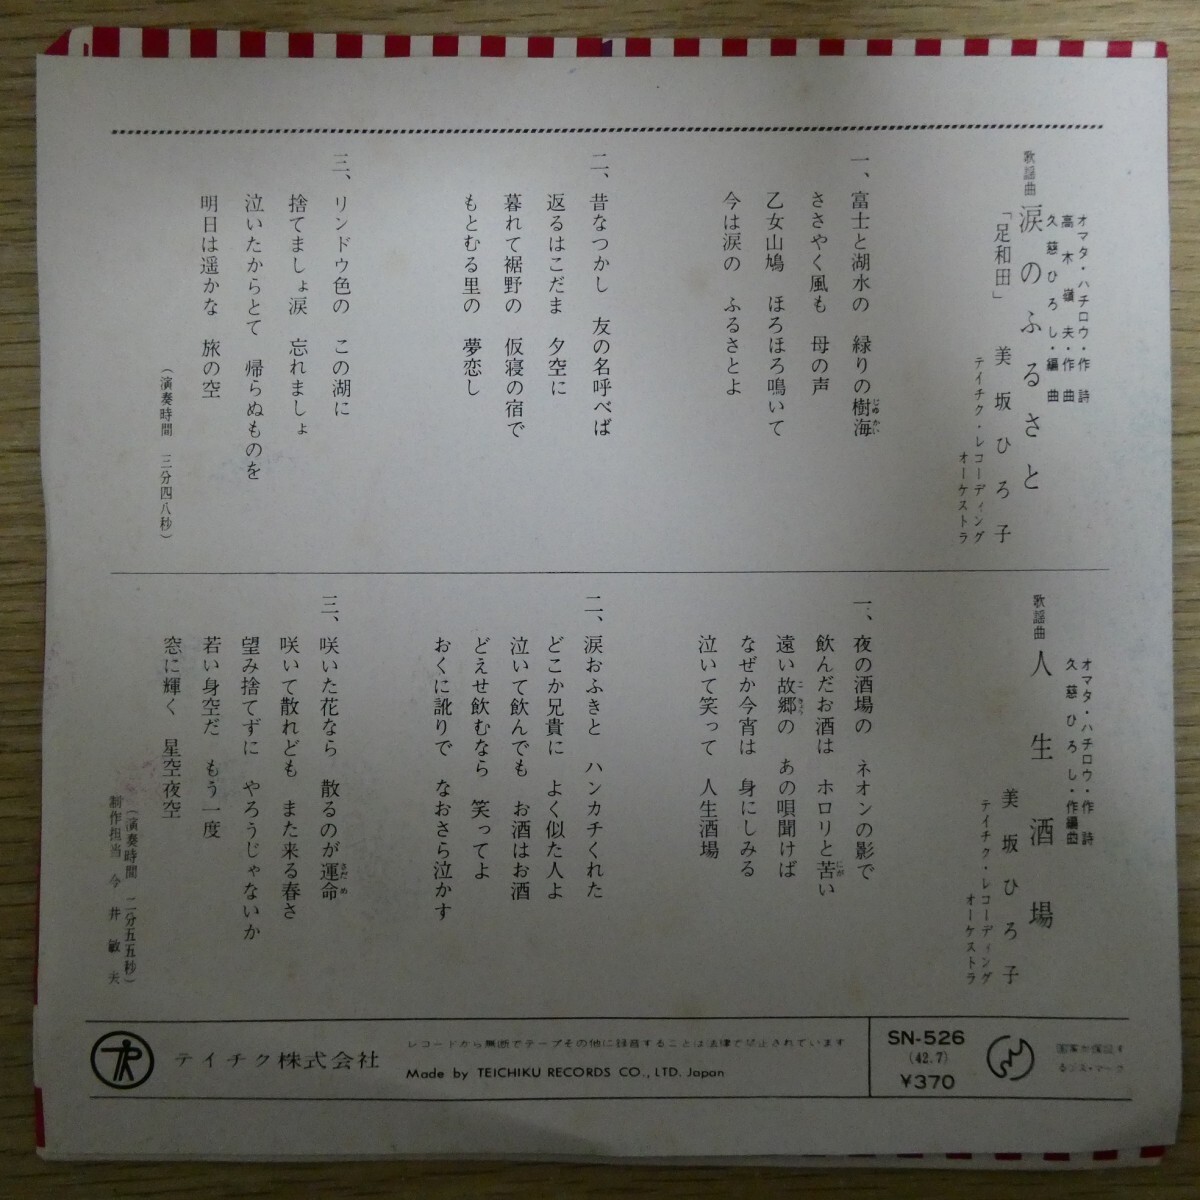 オマタ・ハチロウ・作詩
高木嶺夫・作曲
久慈ひろし・編曲
歌謡曲 涙のふるさと
「足和田」 美坂ひろ子
テイチク・レコーディング
オーケストラ
一、富士と湖水の 緑りの樹海
じゅかい
ささやく風も 母の声
乙女山鳩 ほろほろ鳴いて
今は涙の ふるさとよ
二、昔なつかし 友の名呼べば
返るはこだま 夕空に
暮れて裾野の 仮寝の宿で
もとむる里の 夢恋し
三、リンドウ色の この湖に
捨てましょ涙 忘れましょ
泣いたからとて 帰らぬものを
明日は遥かな 旅の空
(演奏時間 三分四八秒)
オマタ・ハチロウ・作詩
久慈ひろし・作編曲
歌謡曲 人生酒場
美坂ひろ子
テイチク・レコーディング
オーケストラ
一、夜の酒場の ネオンの影で
飲んだお酒は ホロリと苦い
にが
遠い故郷の あの唄聞けば
こきょう
なぜか今宵は 身にしみる
泣いて笑って 人生酒場
二、涙おふきと ハンカチくれた
どこか兄貴に よく似た人よ
泣いて飲んでも お酒はお酒
どえせ飲むなら 笑ってよ
おくに訛りで なおさら泣かす
三、咲いた花なら 散るのが運命
さだめ
咲いて散れども また来る春さ
望み捨てずに やろうじゃないか
若い身空だ もう一度
窓に輝く 星空夜空
(演奏時間 二分五五秒)
制作担当 今井敏夫
テイチク株式会社
レコードから無断でテープその他に録音することは法律で禁止されています
Made by TEICHIKU RECORDS CO., LTD. Japan
SN-526
(42.7)
¥370
国家が保証す
るジス・マーク